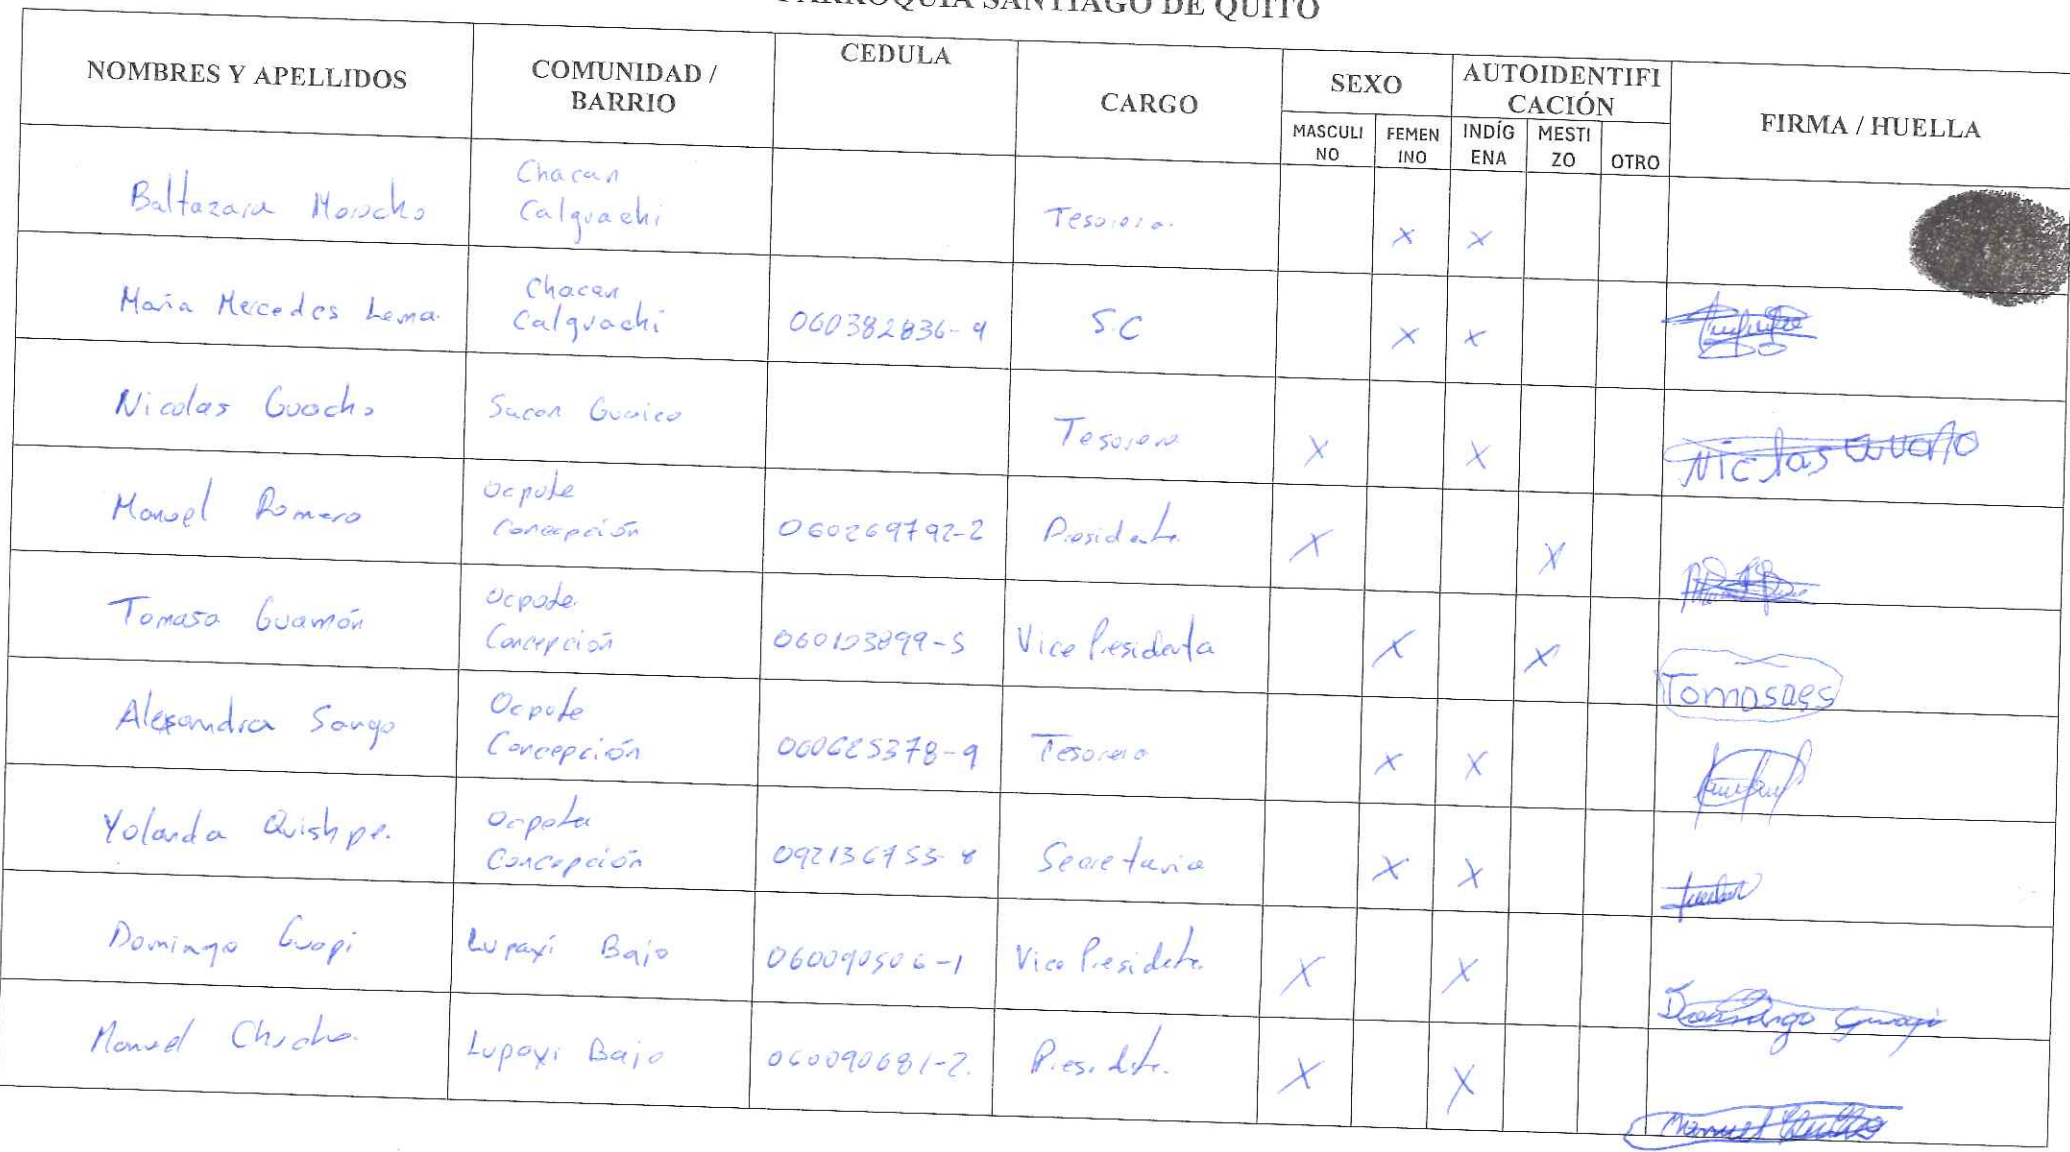 PARROQUIA SANTIAGO DE QUITO
NOMBRES Y APELLIDOS
COMUNIDAD /
BARRIO
CEDULA
CARGO
SEXO
MASCULI
NO
FEMEN
INO
AUTOIDENTIFI
CACIÓN
INDÍG
ENA
MESTI
ZO
OTRO
FIRMA / HUELLA
Baltazara Morocho
Chacan
Calguachi
Tesorera.
X X
Maria Mercedes Lema.
Chacan
Calguachi
060382836-9
S.C
X X
Nicolas Guacho
Sacan Guaico
Tesorero
X X
Nicolas Guacho
Manuel Romero
Ocpote
Concepción
060269792-2
Presidente.
X X
Tomasa Guamán
Ocpote.
Concepción
Vice Presidenta
X X
Tomasaes
Alexandra Sango
Ocpote
Concepción
060625378-9
Tesorero
X X
Yolanda Quishpe.
Ocpote
Concepción
092136753-8
Secretaria
X X
Domingo Guapi
Lupaxí Bajo
060090506-1
Vice Presidente.
X X
Domingo Guapi
Manuel Chucho.
Lupaxi Bajo
060090681-2.
Presidente.
X X
Manuel